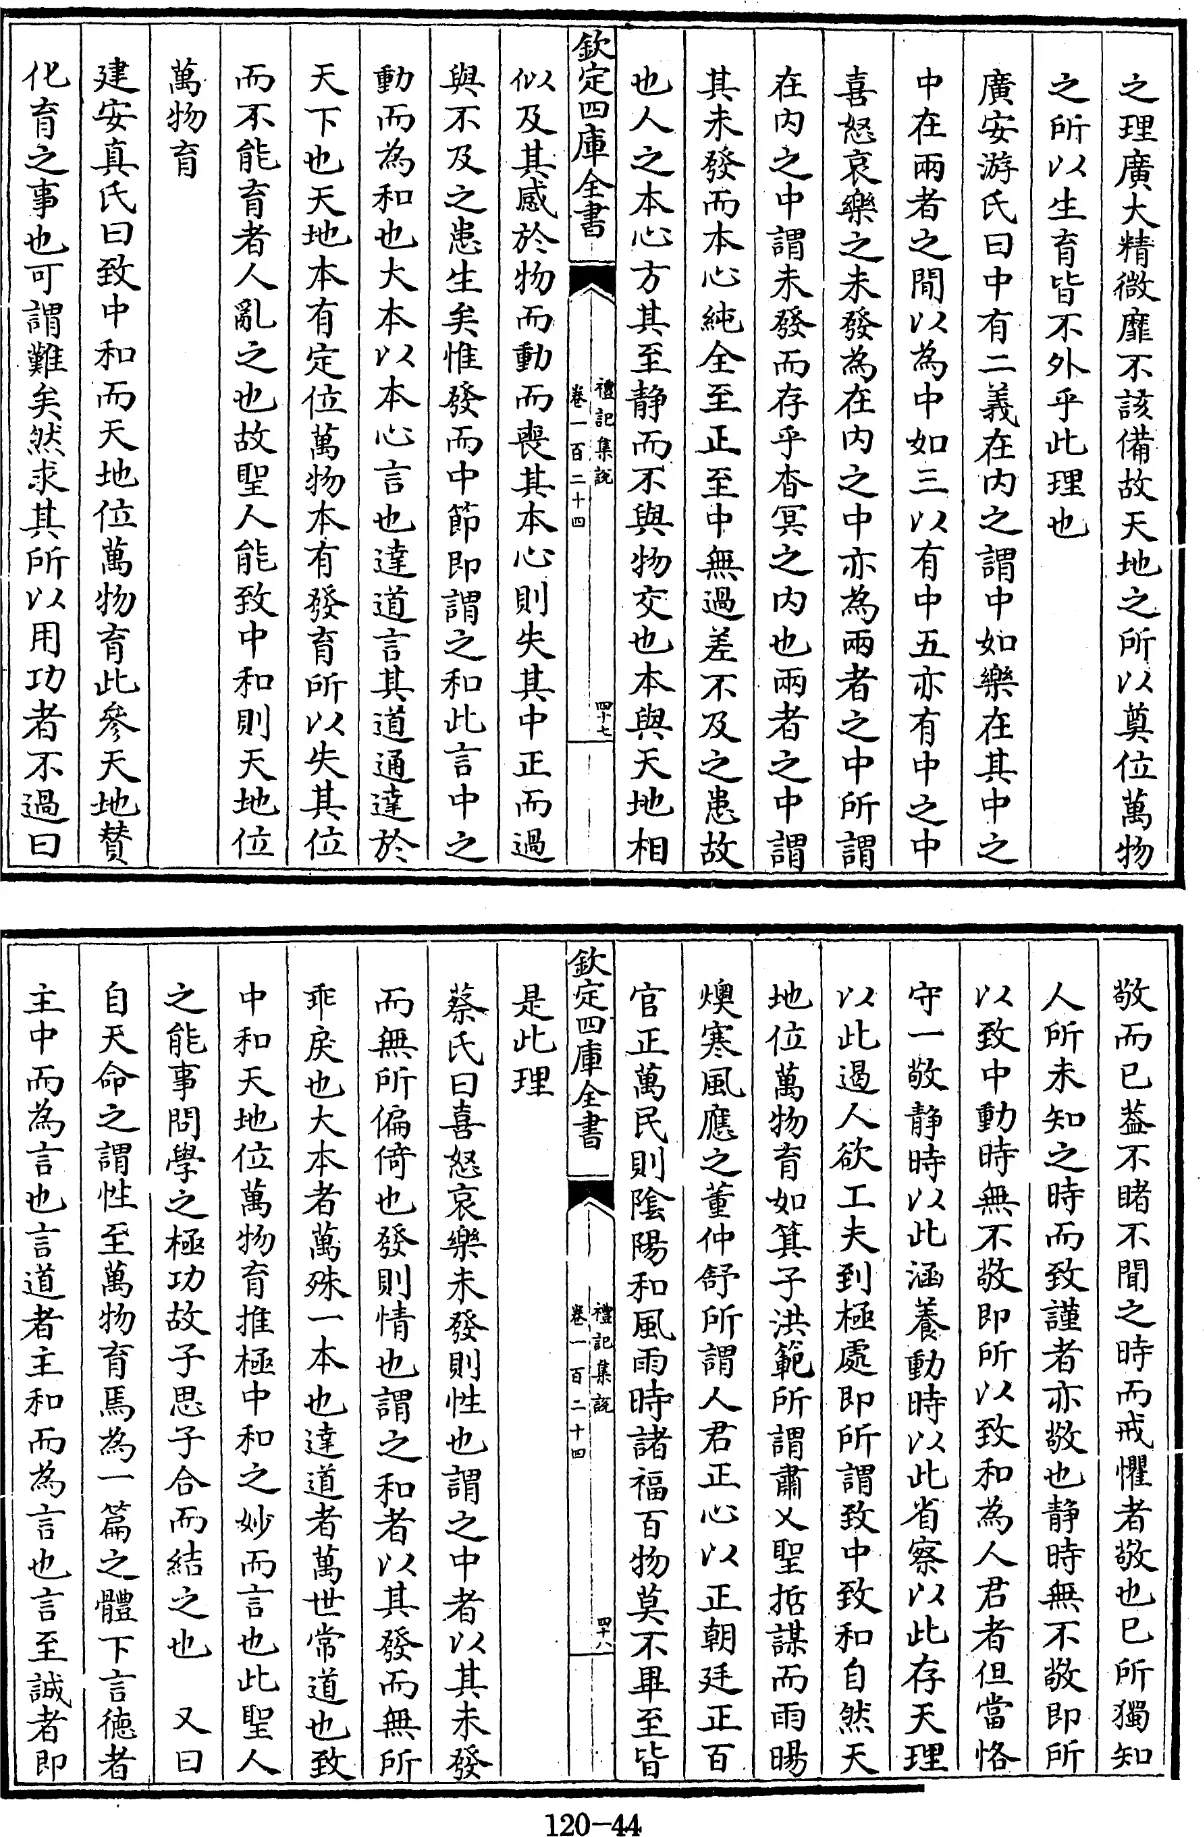 之理廣大精微靡不該備故天地之所以奠位萬物
之所以生育皆不外乎此理也
廣安游氏曰中有二義在内之謂中如樂在其中之
中在兩者之間以為中如三以有中五亦有中之中
喜怒哀樂之未發為在内之中亦為兩者之中所謂
在内之中謂未發而存乎杳冥之内也兩者之中謂
其未發而本心純全至正至中無過差不及之患故
也人之本心方其至静而不與物交也本與天地相
欽定四庫全書
禮記集説
卷一百二十四
四十七
似及其感於物而動而喪其本心則失其中正而過
與不及之患生矣惟發而中節即謂之和此言中之
動而為和也大本以本心言也達道言其道通達於
天下也天地本有定位萬物本有發育所以失其位
而不能育者人亂之也故聖人能致中和則天地位
萬物育
建安真氏曰致中和而天地位萬物育此參天地賛
化育之事也可謂難矣然求其所以用功者不過曰
敬而已葢不睹不聞之時而戒懼者敬也已所獨知
人所未知之時而致謹者亦敬也静時無不敬即所
以致中動時無不敬即所以致和為人君者但當恪
守一敬静時以此涵養動時以此省察以此存天理
以此遏人欲工夫到極處即所謂致中致和自然天
地位萬物育如箕子洪範所謂肅乂聖哲謀而雨暘
燠寒風應之董仲舒所謂人君正心以正朝廷正百
官正萬民則陰陽和風雨時諸福百物莫不畢至皆
欽定四庫全書
禮記集説
卷一百二十四
四十八
是此理
蔡氏曰喜怒哀樂未發則性也謂之中者以其未發
而無所偏倚也發則情也謂之和者以其發而無所
乖戾也大本者萬殊一本也達道者萬世常道也致
中和天地位萬物育推極中和之妙而言也此聖人
之能事問學之極功故子思子合而結之也 又曰
自天命之謂性至萬物育焉為一篇之體下言徳者
主中而為言也言道者主和而為言也言至誠者即
120-44